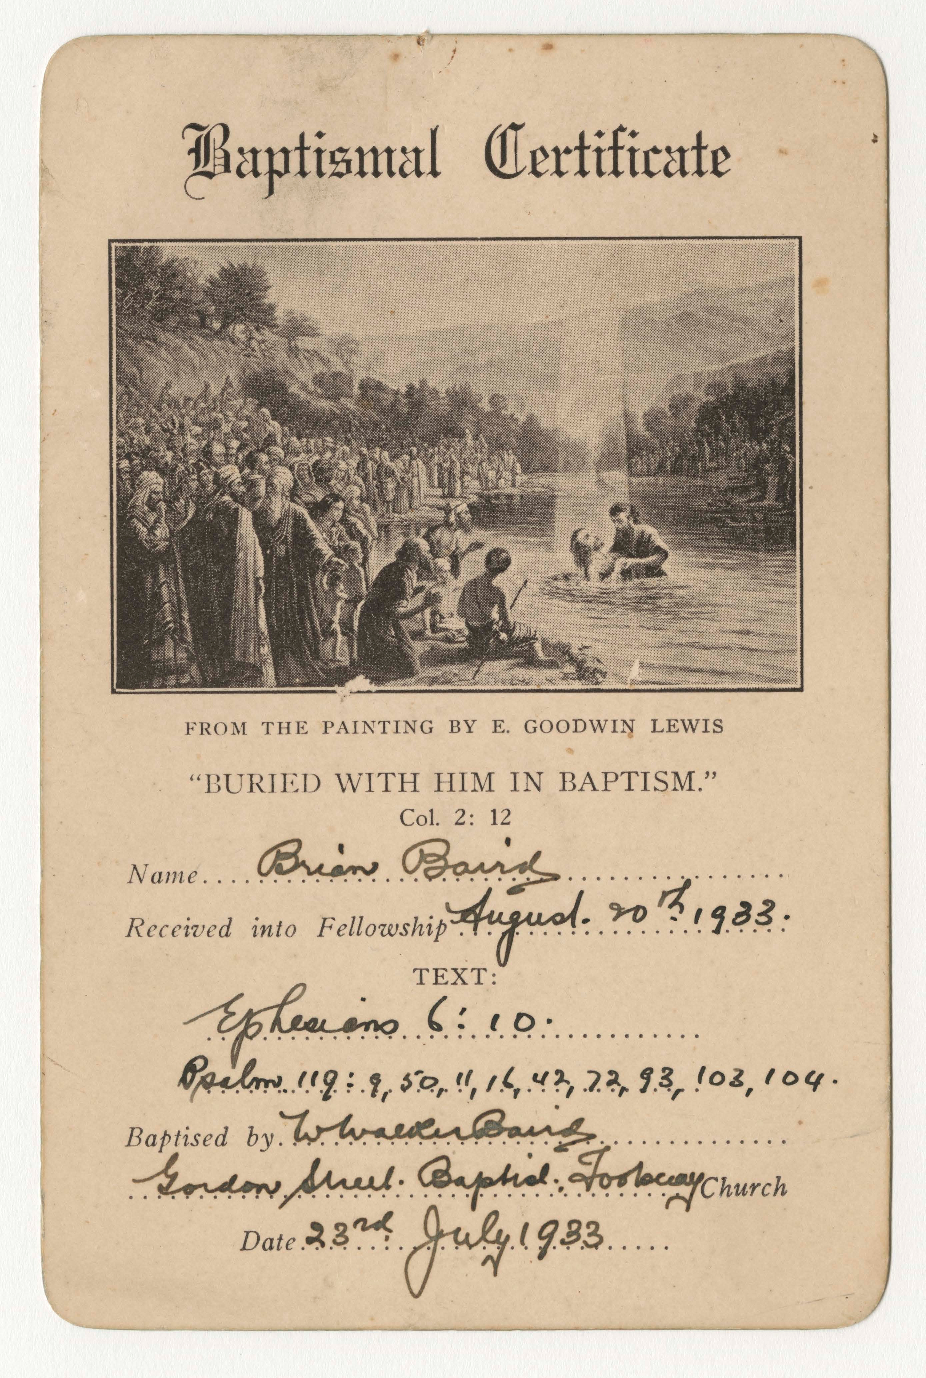 Baptismal Certificate
FROM THE PAINTING BY E. GOODWIN LEWIS
“BURIED WITH HIM IN BAPTISM.”
Col. 2: 12
Name.... Brian Baird
Received into Fellowship August. 20th. 1933.
TEXT:
Ephesians 6: 10.
Psalm 119: 9, 50, 11, 16, 42, 72, 93, 103, 104.
Baptised by W Walker Baird
Gordon Street. Baptist. Footscray Church
Date 23rd July 1933